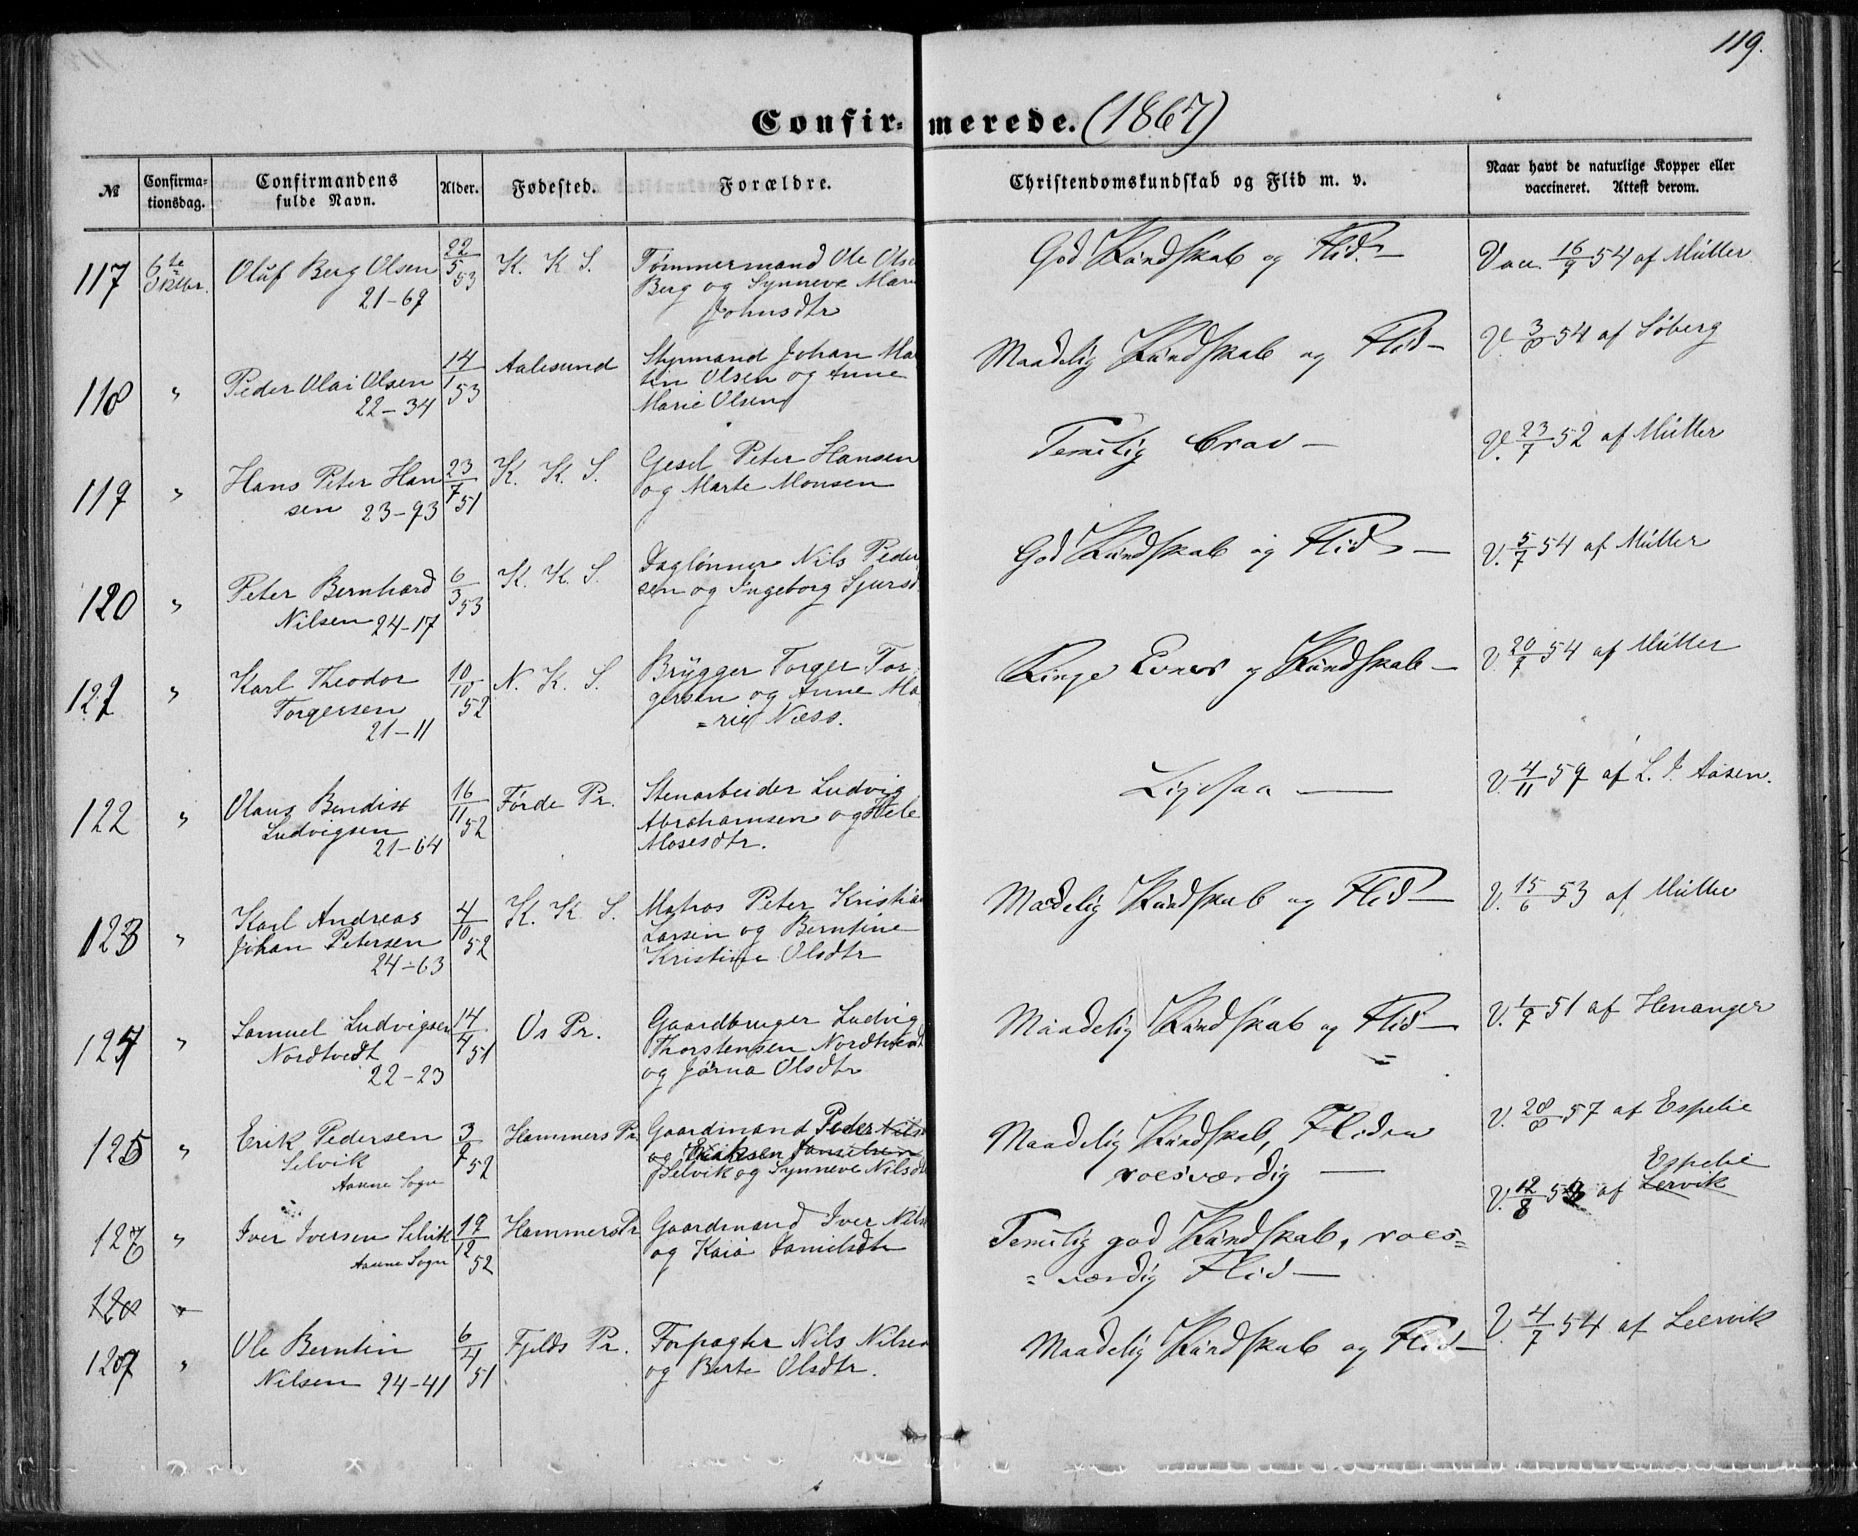 119.
Confirmerede. (1867)
№ Confirmationsdag. Confirmandens fulde Navn. Alder. Fødested. Forældre. Christendomskundskab og Flid m. v. Naar havt de naturlige Kopper eller vaccineret. Attest derom.
117 6te Oktbr. Oluf Berg Olsen 22/5 53 K. K. S. Tømmermand Ole Olsen God Kundskab og Flid. Vac. 16/9 54 af Müller
21-67 Berg og Synneve Mari
Johnsdtr
118 " Peder Olai Olsen 14/1 53 Aalesund Styrmand Johan Mar Maadelig Kundskab og Flid — V. 3/8 54 af Søberg
22-34 tin Olsen og Anne
Marie Olsen
119 " Hans Peter Han 23/7 51 K. K. S. Gesel Peter Hansen Temelig brav — V. 23/7 52 af Müller
sen 23-93 og Marte Monsen
120 " Peter Bernhard 6/3 53 K. K. S. Daglønner Nils Peder God Kundskab og Flid — V. 5/7 54 af Müller
Nilsen 24-17 sen og Ingeborg Sjursd
121 " Karl Theodor 10/10 52 N. K. S. Brygger Torger Tor Ringe Evner og Kundskab — V. 20/7 54 af Müller
Torgersen gersen og Anne Ma
21-11 =rie Næss.
122 " Olaus Bendikt 16/11 52 Førde Pr. Stenarbeider Ludvig Ligesaa — V. 4/11 59 af L. J. Aasen.
Ludvigsen Abrahamsen og Pele
21-64 Mosesdtr.
123 " Karl Andreas 4/10 52 K. K. S. Matros Peter Kristia Maadelig Kundskab og Flid — V. 15/6 53 af Müller
Johan Petersen Larsen og Berntine
24-63 Kristine Olsdtr
124 " Samuel Ludvigsen 14/4 51 Os Pr. Gaardbruger Ludvig Maadelig Kundskab og Flid — V. 1/7 51 af Henanger
Nordtvedt Thorstensen Nordtvedt
22-23 og Jørna Olsdtr
125 " Erik Pedersen 3/7 52 Hammers Pr Gaardmand Peder Nils Maadelig Kundskab, Fliden V. 28/8 57 af Espelie
Selvik og Eriksen Danielsen roesværdig —
Aasene Sogn Selvik og Synneve Nilsd
126 " Iver Iversen Selvik 19/12 52 Hammers Pr Gaardmand Iver Nils Temelig god Kundskab, roes= V. 12/8 5 af Lervik Espelie
Aasene Sogn og Kaia Danielsdtr =værdig Flid —
128 "
127 " Ole Berntin 6/4 51 Fjelds Pr. Forpagter Nils Nilsen Maadelig Kundskab og Flid — V. 4/7 54 af Leervik
Nilsen 24-41 og Berte Olsdtr.